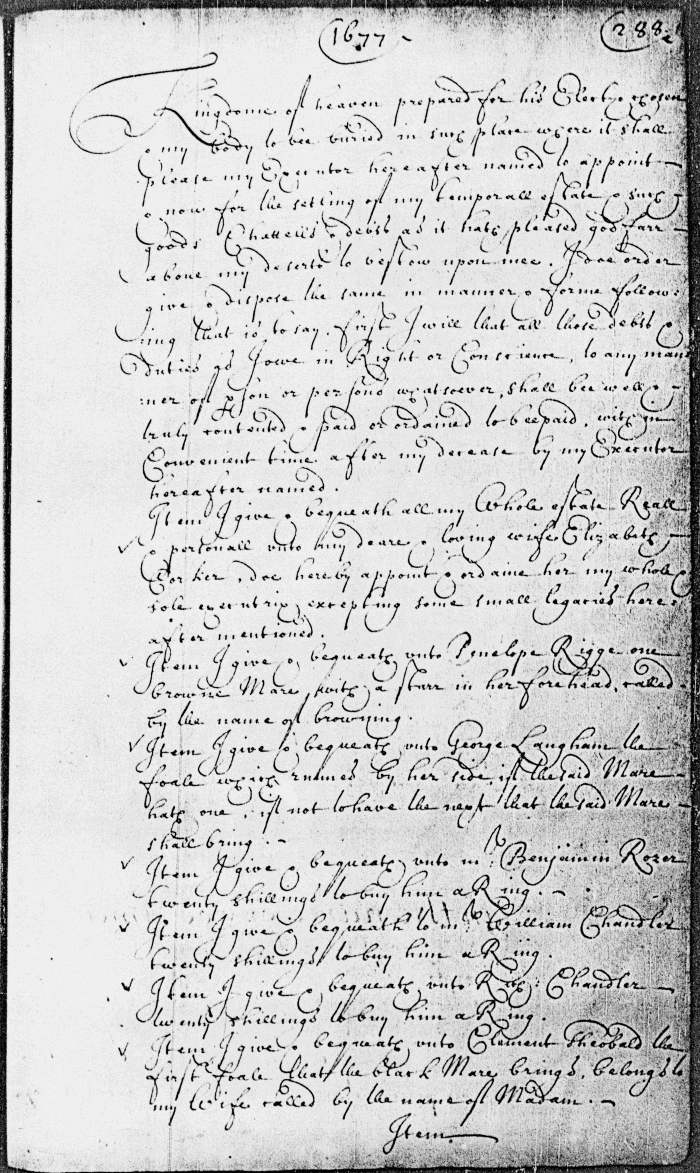 1677
288
Kingdome of heaven prepared for his Elect & chosen
& my body to bee buried in such place where it shall
please my Executor hereafter named to appoint
& now for the setling of my temporall estate & such
goods Chattells & debts as it hath pleased god farr
above my deserts to bestow upon mee. I doe order
give & dispose the same in manner & forme follow:
ing that is to say, first I will that all those debts &
duties as I owe in Right or Conscience, to any man
:ner of pson or persons whatsoever, shall bee well &
truly contented & paid or ordained to bee paid, with in
Convenient time after my decease by my Executor
hereafter named.
Item I give & bequeath all my Whole estate Reall
& personall unto my deare & loving wife Elizabeth
doe hereby appoint & ordaine her my whole &
sole executrix, excepting some small legacies here
after mentioned.
Item I give & bequeath unto Penelope Rigge one
browne Mare, with a starr in her forehead, called
by the name of browning.
Item I give & bequeath unto George Langham the
foale which runnes by her side, if the said Mare
hath one, if not to have the next that the said Mare
shall bring.
Item I give & bequeath unto mr. Benjamin Rozer
twenty shillings to buy him a Ring.
Item I give & bequeath to mr William Chandler
twenty shillings to buy him a Ring.
Item I give & bequeath unto Rich: Chandler
twenty shillings to buy him a Ring.
Item I give & bequeath unto Clement Theobald the
first foale that the black Mare brings, belongs to
my Wife called by the name of Madam.
Item